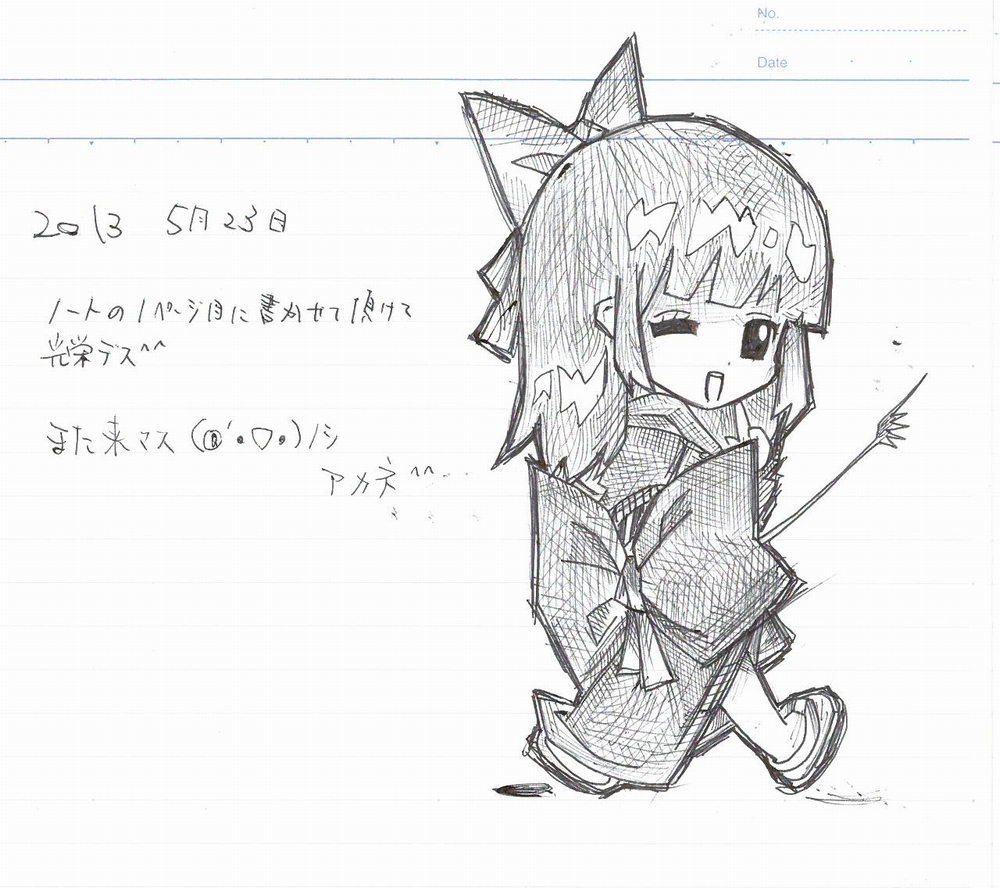 No.
Date
2013 5月23日
ノートの1ページ目に書かせて頂けて
光栄デス^^
また来マス (@'・▽・)ノシ
アカネ^^…